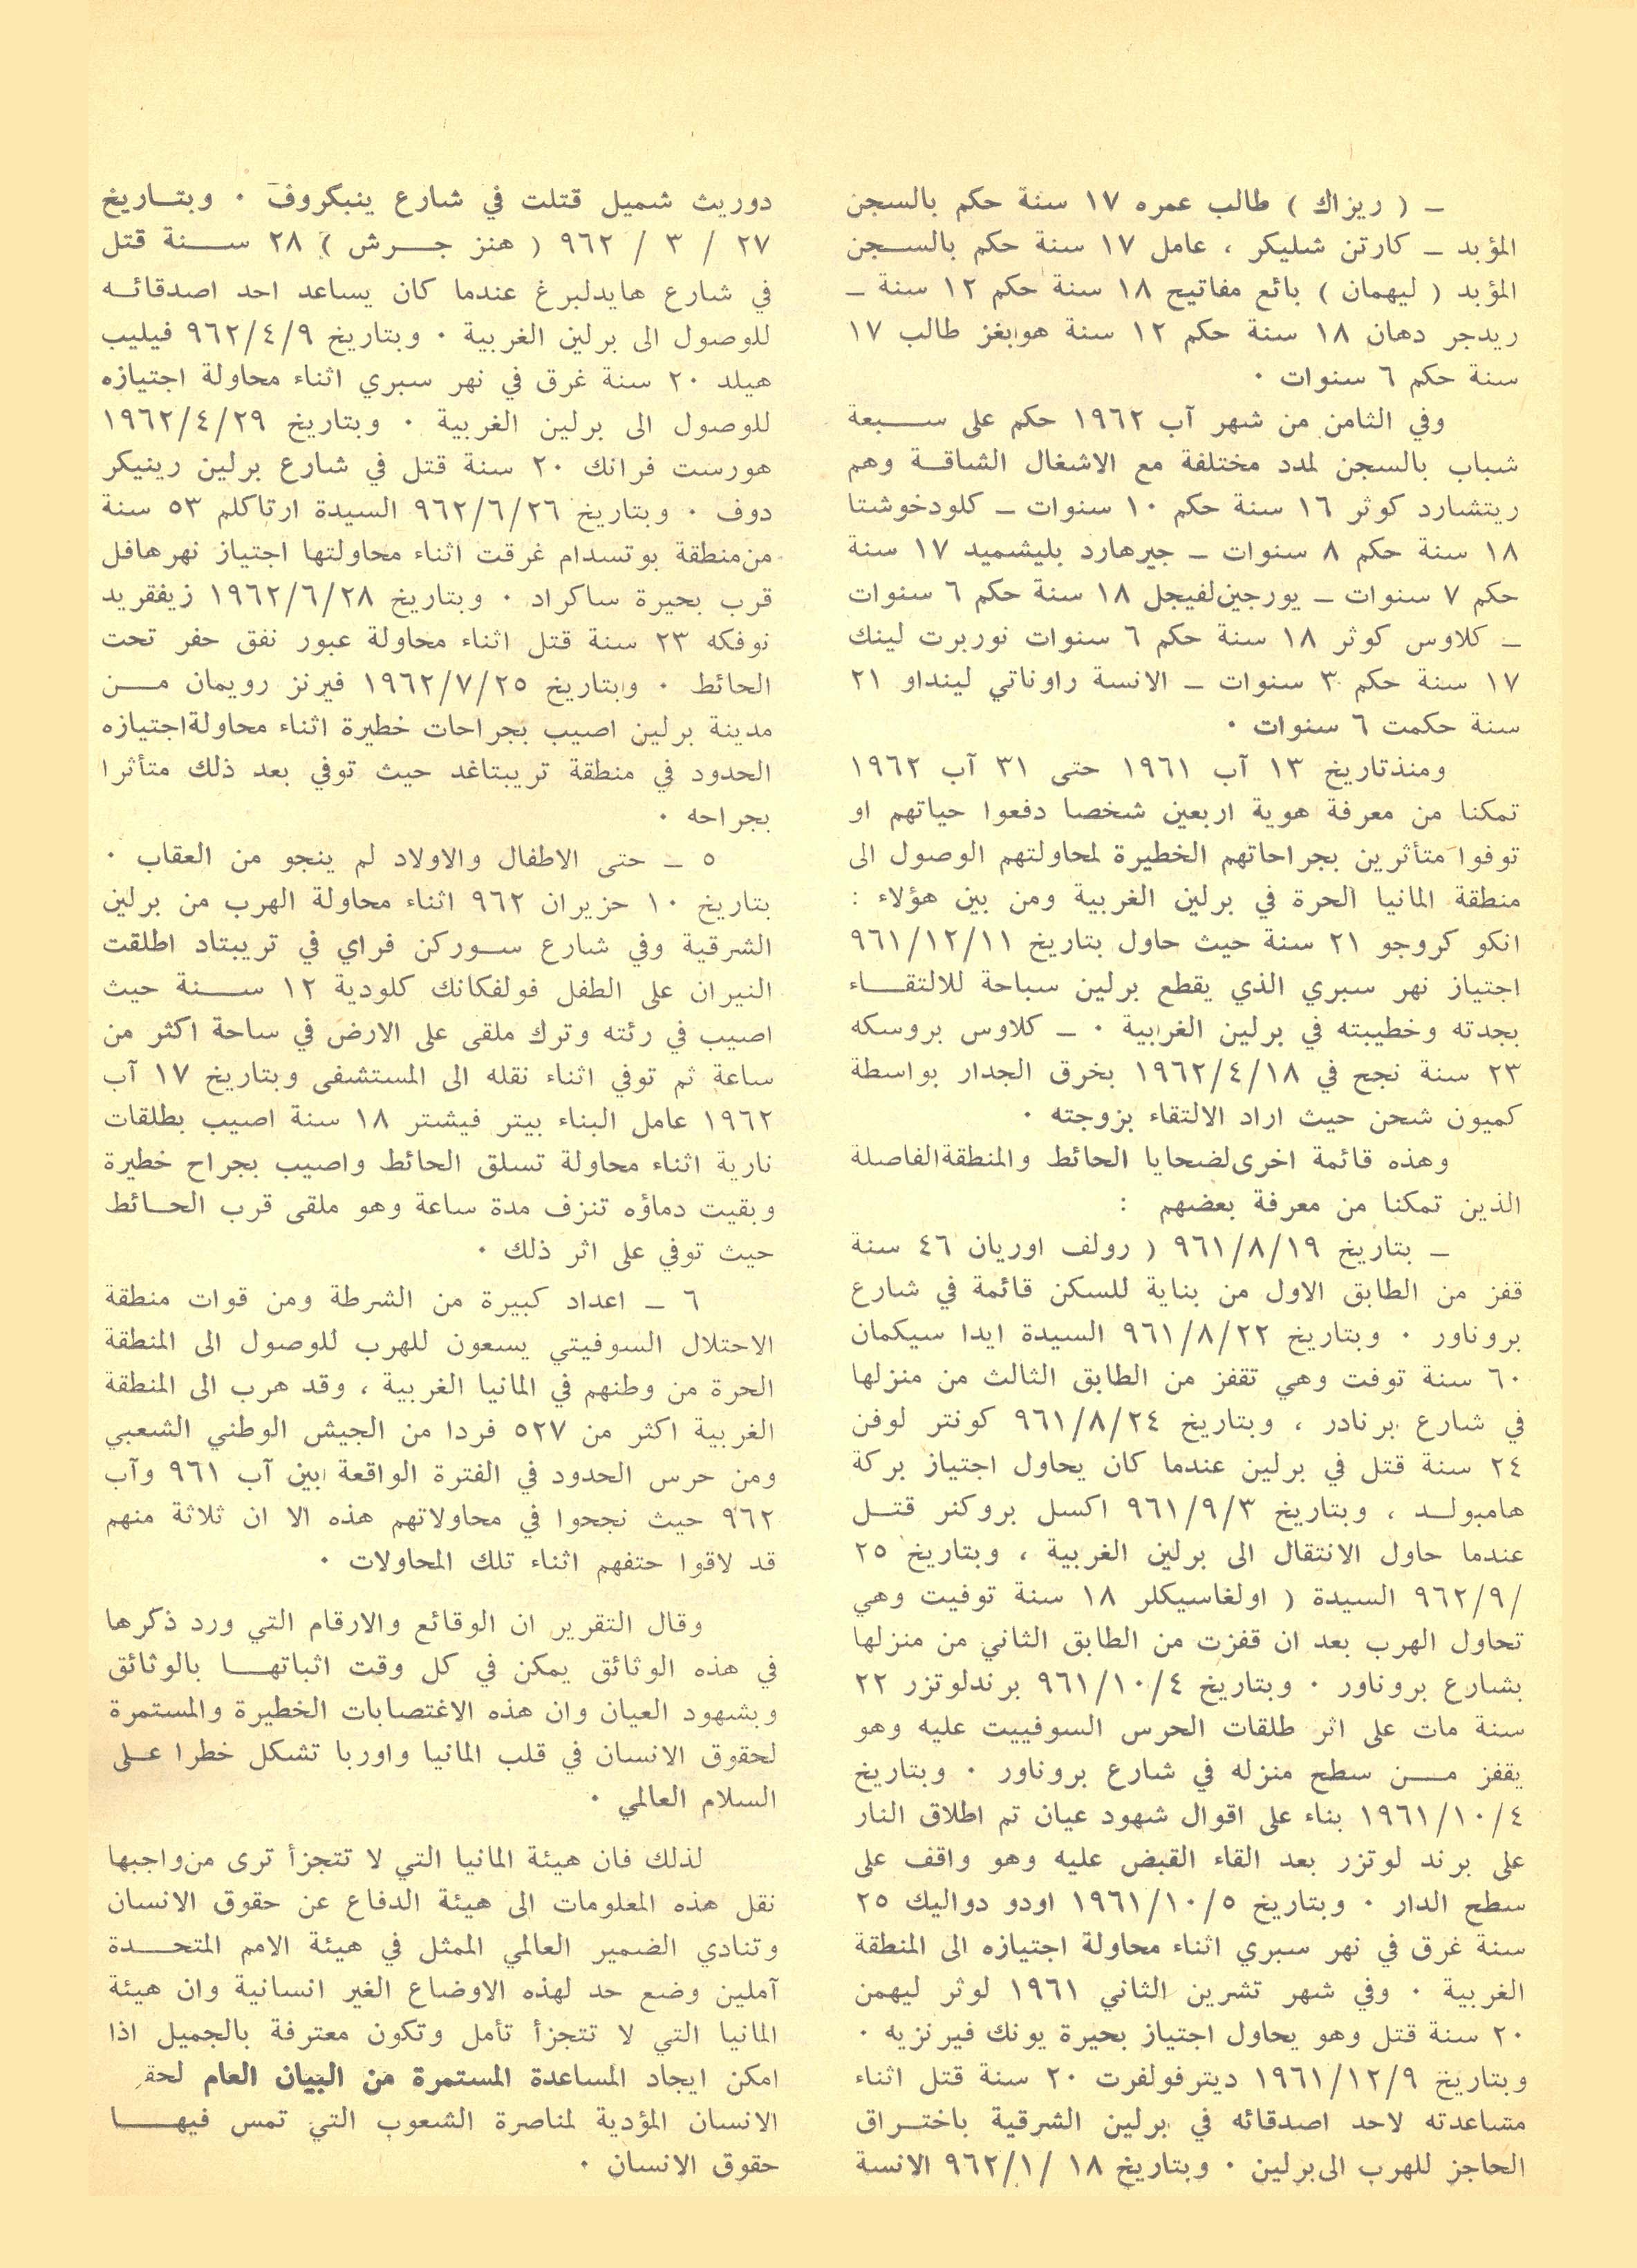 ـ ( ريزاك ) طالب عمره ١٧ سنة حكم بالسجن
المؤبد ـ كارتن شليكر ، عامل ١٧ سنة حكم بالسجن
المؤبد ( ليهمان ) بائع مفاتيح ١٨ سنة حكم ١٢ سنة ـ
ريدجر دهان ١٨ سنة حكم ١٢ سنة هوابغز طالب ١٧
سنة حكم ٦ سنوات ٠
وفي الثامن من شهر آب ١٩٦٢ حكم على سبعة
شباب بالسجن لمدد مختلفة مع الاشغال الشاقة وهم
ريتشارد كوثر ١٦ سنة حكم ١٠ سنوات ـ كلودخوشتا
١٨ سنة حكم ٨ سنوات ـ جيرهارد بليشميد ١٧ سنة
حكم ٧ سنوات ـ يورجين لفيجل ١٨ سنة حكم ٦ سنوات
ـ كلاوس كوثر ١٨ سنة حكم ٦ سنوات نوربرت لينك
١٧ سنة حكم ٣ سنوات ـ الانسة راوناتي لينداو ٢١
سنة حكمت ٦ سنوات ٠
ومنذتاريخ ١٣ آب ١٩٦١ حتى ٣١ آب ١٩٦٢
تمكنا من معرفة هوية اربعين شخصا دفعوا حياتهم او
توفوا متأثرين بجراحاتهم الخطيرة لمحاولتهم الوصول الى
منطقة المانيا الحرة في برلين الغربية ومن بين هؤلاء :
انكو كروجو ٢١ سنة حيث حاول بتاريخ ٩٦١/١٢/١١
اجتياز نهر سبري الذي يقطع برلين سباحة للالتقاء
بجدته وخطيبته في برلين الغربية ٠ ـ كلاوس بروسكه
٢٣ سنة نجح في ١٩٦٢/٤/١٨ بخرق الجدار بواسطة
كميون شحن حيث اراد الالتقاء بزوجته ٠
وهذه قائمة اخرى لضحايا الحائط والمنطقة الفاصلة
الذين تمكنا من معرفة بعضهم :
ـ بتاريخ ٩٦١/٨/١٩ ( رولف اوريان ٤٦ سنة
قفز من الطابق الاول من بناية للسكن قائمة في شارع
بروناور ٠ وبتاريخ ٩٦١/٨/٢٢ السيدة ايدا سيكمان
٦٠ سنة توفت وهي تقفز من الطابق الثالث من منزلها
في شارع برنادر ، وبتاريخ ٩٦١/٨/٢٤ كونتر لوفن
٢٤ سنة قتل في برلين عندما كان يحاول اجتياز بركة
هامبولد ، وبتاريخ ٩٦١/٩/٣ اكسل بروكنر قتل
عندما حاول الانتقال الى برلين الغربية ، وبتاريخ ٢٥
/٩٦٢/٩ السيدة ( اولغاسيكلر ١٨ سنة توفيت وهي
تحاول الهرب بعد ان قفزت من الطابق الثاني من منزلها
بشارع بروناور ٠ وبتاريخ ٩٦١/١٠/٤ برندلوتزر ٢٢
سنة مات على اثر طلقات الحرس السوفييت عليه وهو
يقفز من سطح منزله في شارع بروناور ٠ وبتاريخ
١٩٦١/١٠/٤ بناء على اقوال شهود عيان تم اطلاق النار
على برند لوتزر بعد القاء القبض عليه وهو واقف على
سطح الدار ٠ وبتاريخ ١٩٦١/١٠/٥ اودو دواليك ٢٥
سنة غرق في نهر سبري اثناء محاولة اجتيازه الى المنطقة
الغربية ٠ وفي شهر تشرين الثاني ١٩٦١ لوثر ليهمن
٢٠ سنة قتل وهو يحاول اجتياز بحيرة يونك فيرنزيه ٠
وبتاريخ ١٩٦١/١٢/٩ ديترفولفرت ٢٠ سنة قتل اثناء
مساعدته لاحد اصدقائه في برلين الشرقية باختراق
الحاجز للهرب الى برلين ٠ وبتاريخ ١٨ /٩٦٢/١ الانسة
دوريث شميل قتلت في شارع ينبكروف ٠ وبتاريخ
٢٧ / ٣ / ٩٦٢ ( هنز جرش ) ٢٨ سنة قتل
في شارع هايدلبرغ عندما كان يساعد احد اصدقائه
للوصول الى برلين الغربية ٠ وبتاريخ ٩٦٢/٤/٩ فيليب
هيلد ٢٠ سنة غرق في نهر سبري اثناء محاولة اجتيازه
للوصول الى برلين الغربية ٠ وبتاريخ ١٩٦٢/٤/٢٩
هورست فرانك ٢٠ سنة قتل في شارع برلين رينيكر
دوف ٠ وبتاريخ ٩٦٢/٦/٢٦ السيدة ارتاكلم ٥٣ سنة
من منطقة بوتسدام غرقت اثناء محاولتها اجتياز نهر هافل
قرب بحيرة ساكراد ٠ وبتاريخ ١٩٦٢/٦/٢٨ زيفقريد
نوفكه ٢٣ سنة قتل اثناء محاولة عبور نفق حفر تحت
الحائط ٠ وبتاريخ ١٩٦٢/٧/٢٥ فيرنز رويمان من
مدينة برلين اصيب بجراحات خطيرة اثناء محاولة اجتيازه
الحدود في منطقة تريبتاغد حيث توفي بعد ذلك متأثرا
بجراحه ٠
٥ ـ حتى الاطفال والاولاد لم ينجو من العقاب ٠
بتاريخ ١٠ حزيران ٩٦٢ اثناء محاولة الهرب من برلين
الشرقية وفي شارع سوركن فراي في تريبتاد اطلقت
النيران على الطفل فولفكانك كلودية ١٢ سنة حيث
اصيب في رئته وترك ملقى على الارض في ساحة اكثر من
ساعة ثم توفي اثناء نقله الى المستشفى وبتاريخ ١٧ آب
١٩٦٢ عامل البناء بيتر فيشتر ١٨ سنة اصيب بطلقات
نارية اثناء محاولة تسلق الحائط واصيب بجراح خطيرة
وبقيت دماؤه تنزف مدة ساعة وهو ملقى قرب الحائط
حيث توفي على اثر ذلك ٠
٦ ـ اعداد كبيرة من الشرطة ومن قوات منطقة
الاحتلال السوفيتي يسعون للهرب للوصول الى المنطقة
الحرة من وطنهم في المانيا الغربية ، وقد هرب الى المنطقة
الغربية اكثر من ٥٢٧ فردا من الجيش الوطني الشعبي
ومن حرس الحدود في الفترة الواقعة بين آب ٩٦١ وآب
٩٦٢ حيث نجحوا في محاولاتهم هذه الا ان ثلاثة منهم
قد لاقوا حتفهم اثناء تلك المحاولات ٠
وقال التقرير ان الوقائع والارقام التي ورد ذكرها
في هذه الوثائق يمكن في كل وقت اثباتها بالوثائق
وبشهود العيان وان هذه الاغتصابات الخطيرة والمستمرة
لحقوق الانسان في قلب المانيا واوربا تشكل خطرا على
السلام العالمي ٠
لذلك فان هيئة المانيا التي لا تتجزأ ترى من واجبها
نقل هذه المعلومات الى هيئة الدفاع عن حقوق الانسان
وتنادي الضمير العالمي الممثل في هيئة الامم المتحدة
آملين وضع حد لهذه الاوضاع الغير انسانية وان هيئة
المانيا التي لا تتجزأ تأمل وتكون معترفة بالجميل اذا
امكن ايجاد المساعدة المستمرة من البيان العام لحق
الانسان المؤدية لمناصرة الشعوب التي تمس فيها
حقوق الانسان ٠